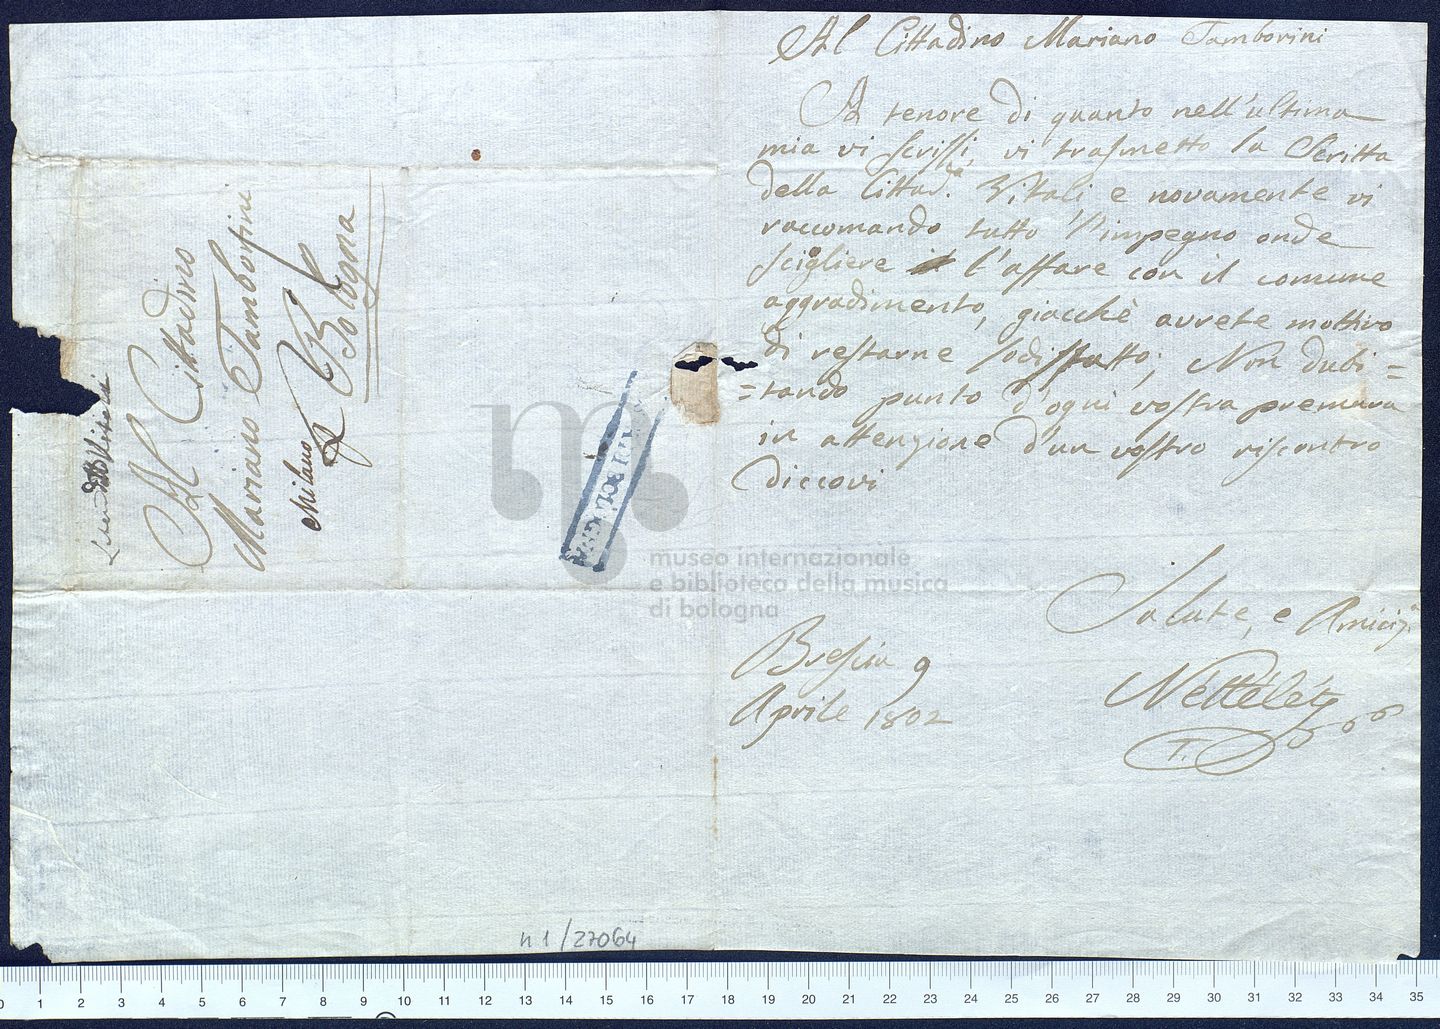 Al Cittadino Mariano Tamborini
A tenore di quanto nell'ultima
mia vi scrissi, vi trasmetto la Scritta
della Cittad.na Vitali e novamente vi
raccomando tutto l'impegno onde
sciogliere l'affare con il comune
aggradimento, giacchè avrete mottivo
di restarne sodisfatto; Non dubi=
=tando punto d'ogni vostra premura
in attenzione d'un vostro riscontro
diccovi
Salute, e Amiciz.a
Brescia 9
Aprile 1802
T.
Al Cittadino
Mariano Tamborini
Milano
Bologna
BOLOGNA
n 1/27064
museo internazionale
e biblioteca della musica
di bologna
0 1 2 3 4 5 6 7 8 9 10 11 12 13 14 15 16 17 18 19 20 21 22 23 24 25 26 27 28 29 30 31 32 33 34 35